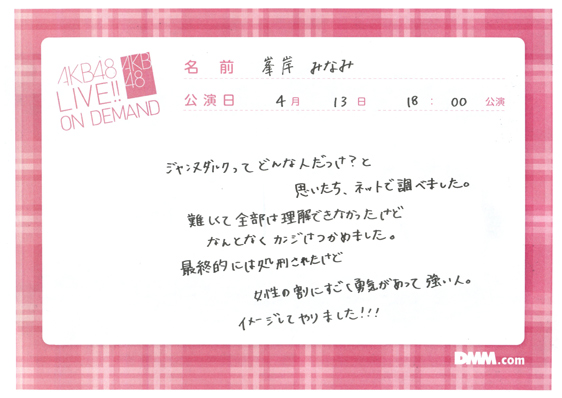 AKB48
LIVE!!
ON DEMAND
AKB
48
名前 峯岸 みなみ
公演日 4月 13日 18:00 公演
ジャンヌダルクってどんな人だっけ?と
思いたち、ネットで調べました。
難しくて全部は理解できなかったけど
なんとなくカンジはつかめました。
最終的には処刑されたけど
女性の割にすごく勇気があって強い人。
イメージしてやりました!!!
DMM.com